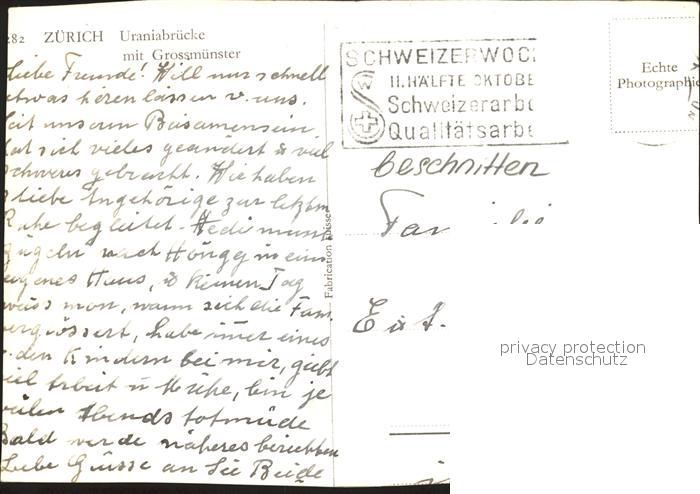 282 ZÜRICH Uraniabrücke
mit Grossmünster
Liebe Freunde! Will nur schnell
etwas hören lassen v. uns.
Seit unserem Beisamensein
hat sich vieles geändert & viel
schweres gebracht. Wir haben
liebe Angehörige zur letzten
Ruhe begleitet. Hedi musste
nach Höngg in ein
eigenes Haus, & keinen Tag
weiss man, wann sich die Fam.
vergrössert, habe imer eines
v. den Kindern bei mir, giebt
viel Arbeit u Mühe, bin je
weilen Abends totmüde
Bald werde näheres berichten
Liebe Grüsse an Sie Beide
Fabrication
SCHWEIZERWOCH
II. HÄLFTE OKTOBE
Schweizerarbe
Qualitätsarbe
Echte
Photographie
beschnitten
Fam
privacy protection
Datenschutz